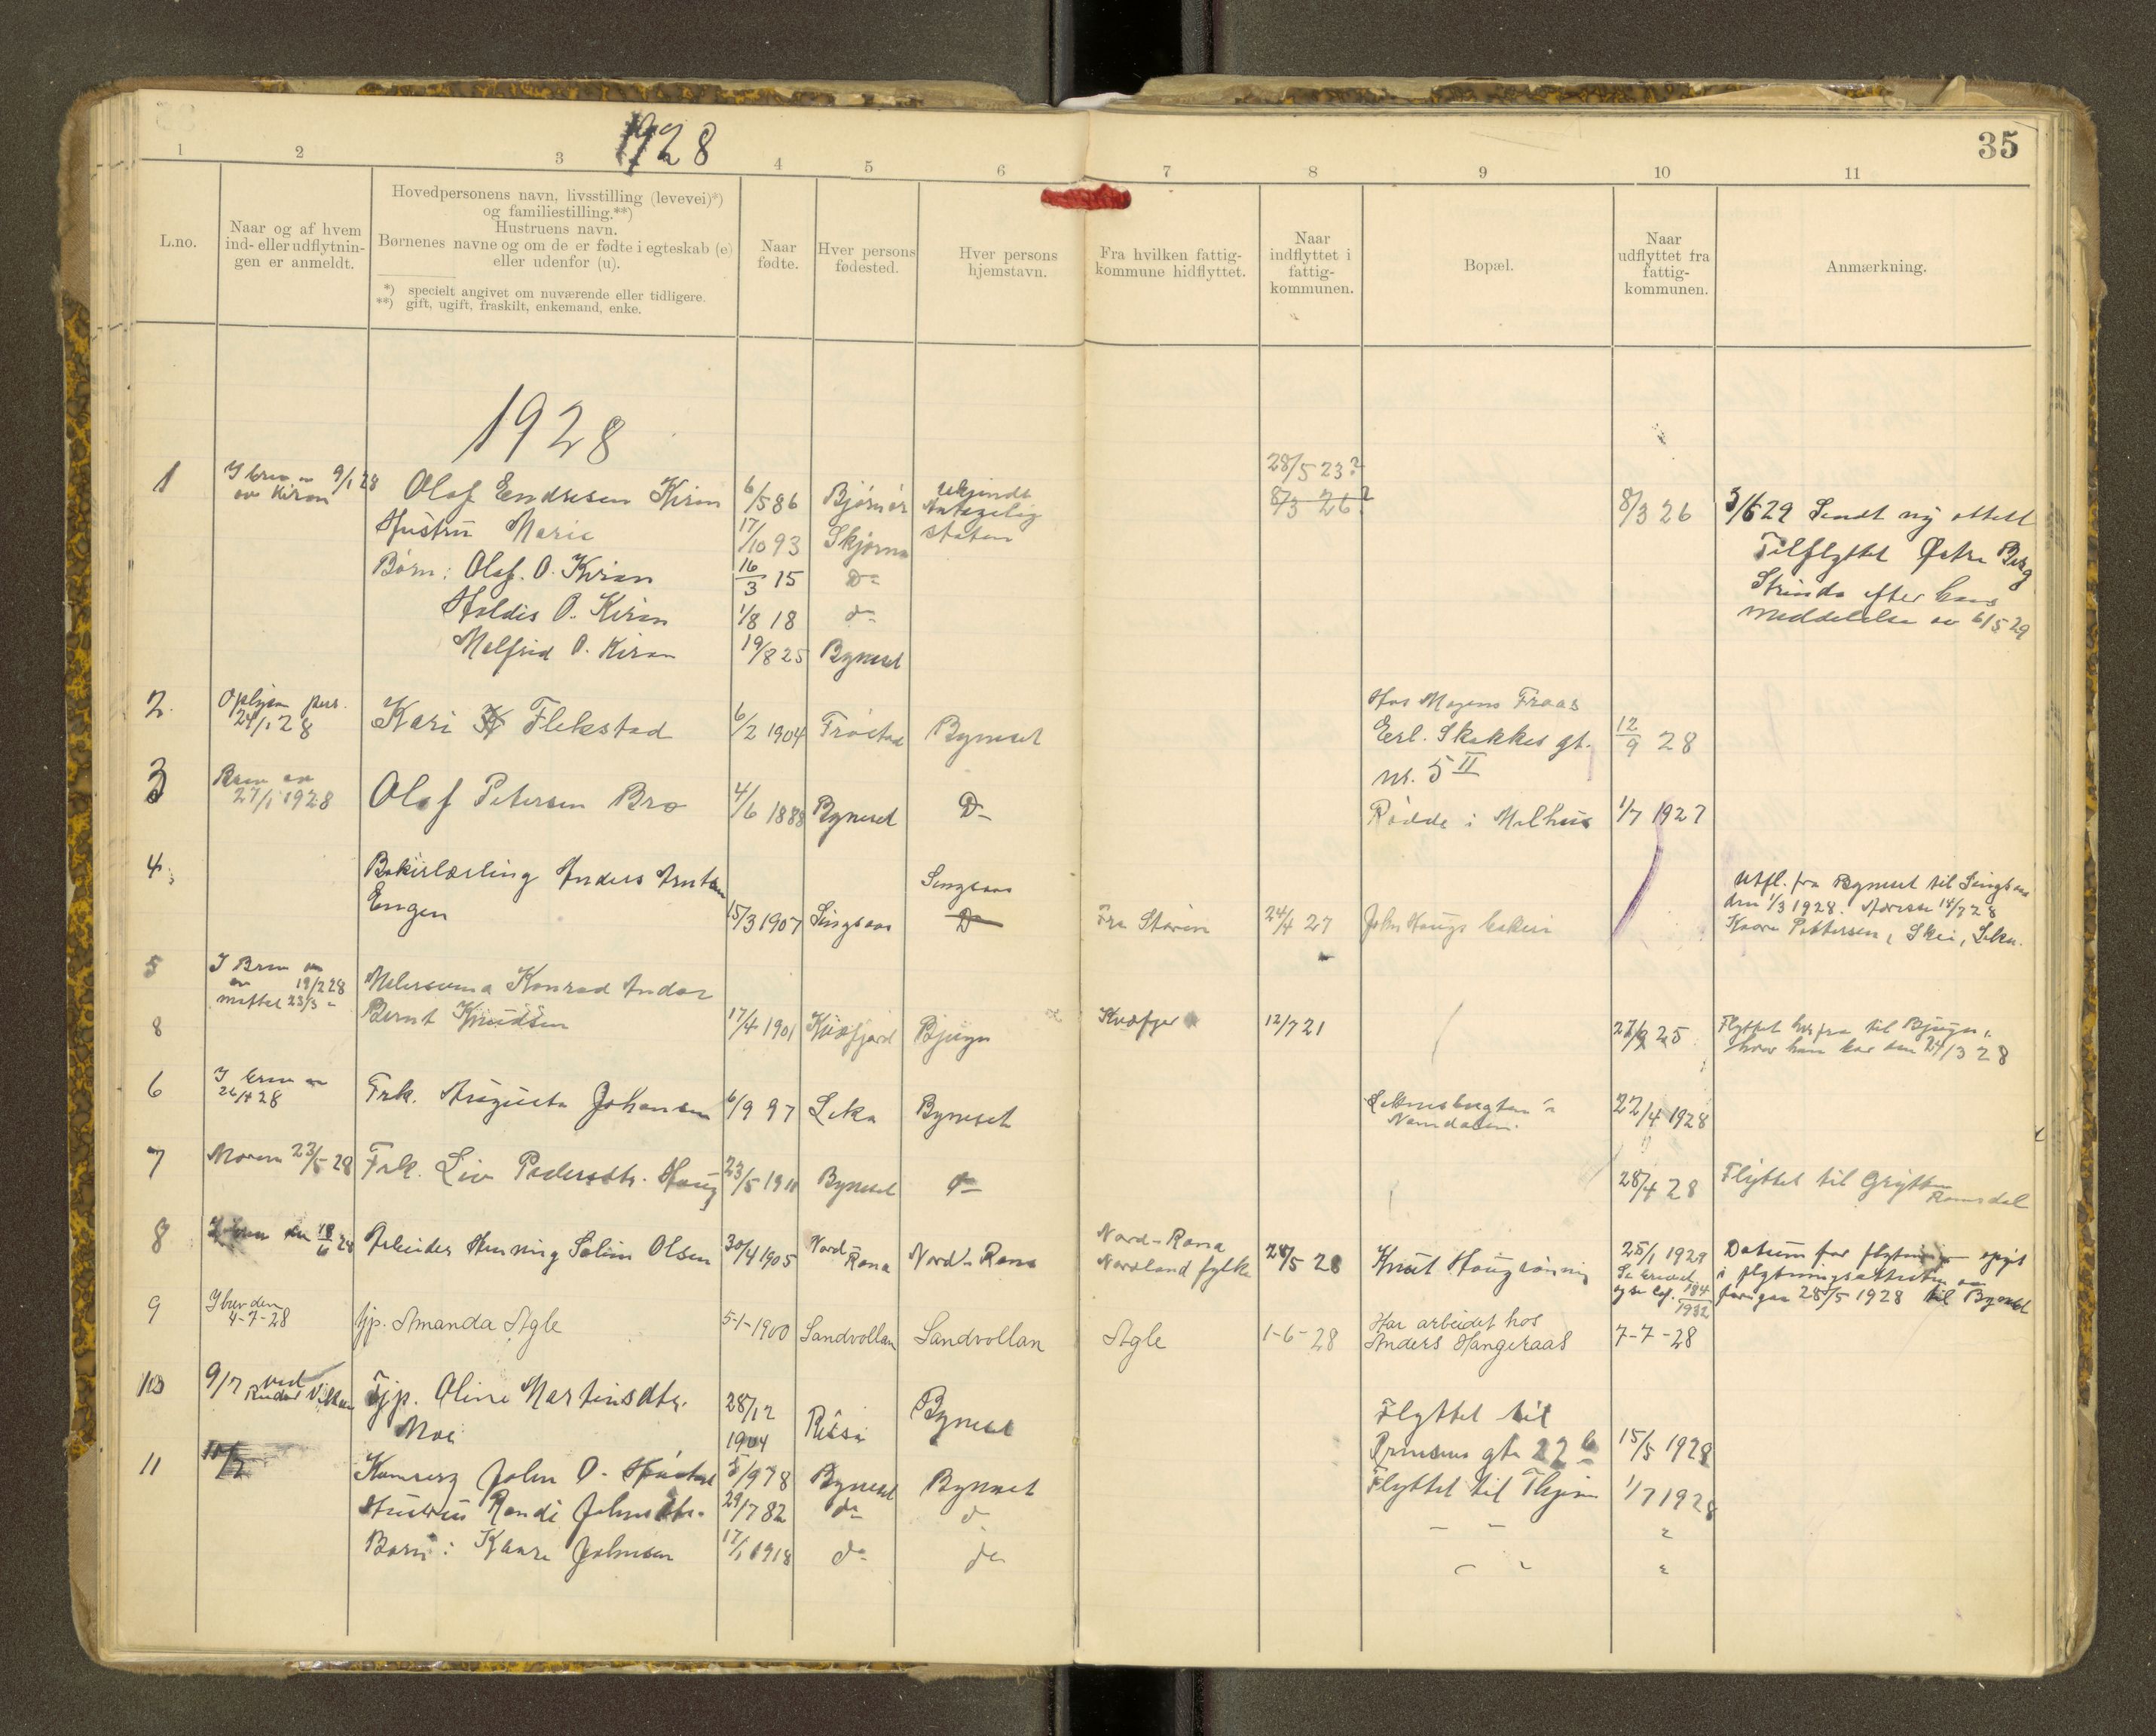 1928
35
1 2 3 4 5 6 7 8 9 10 11
L.no.
Naar og af hvem
ind- eller udflytnin-
gen er anmeldt.
Hovedpersonens navn, livsstilling (levevei)*)
og familiestilling.**)
Hustruens navn.
Børnenes navne og om de er fødte i egteskab (e)
eller udenfor (u).
*) specielt angivet om nuværende eller tidligere.
**) gift, ugift, fraskilt, enkemand, enke.
Naar
fødte.
Hver persons
fødested.
Hver persons
hjemstavn.
Fra hvilken fattig-
kommune hidflyttet.
Naar
indflyttet i
fattig-
kommunen.
Bopæl.
Naar
udflyttet fra
fattig-
kommunen.
Anmærkning.
1928
28/5 23?
1 9/1 28 Olaf Endresen Kiran 6/5 86 Bjørnør Ukjendt 8/3 26? 8/3 26 3/6 29 Sendt ny attest
av Kiran Antagelig
Hustru Marie 17/10 93 Skjørna staten Tilflyttet Østre Berg
Børn: Olaf. O. Kiran 16/3 15 Do Strinda efter hans
Holdis O. Kiran 1/8 18 do meddelelse av 6/5 29
Malfrid O. Kiran 19/8 25 Bynesset
Hos Mogens Fraas
2. 24/1 28 Kari Flekstad 6/2 1904 Byneset Erl. Skakkes gt. 12/9 28
nr. 5 II
3 Brev av
27/1 1928 Olaf Petersen Bro 4/6 1888 Byneset Do Rødde i Melhus 1/7 1927
4. Bakerlærling Anders Arntsen Singsaas Utfl. fra Byneset til Singsaas
Engen 15/3 1907 Singsaas Do Fra Støren 24/4 27 John Haugs bakeri den 1/3 1928. Adresse 14/3 28
Kaare Pettersen, Skei, Leka.
5 I Brev
av 19/2 28 Konrad Andor
23/3
8 Bernt Knudsen 17/4 1901 Kvæfjord Bjugn Kvæfjor 12/7 21 27/9 25 Flyttet herfra til Bjugn,
hvor han bor den 24/3 28
6 I brev av
26/4 28 Frk. Augusta Johansen 6/9 97 Leka Byneset Namdalen. 22/4 1928
7 Moren 23/5 28 Frk. Liv Pedersdtr. Haug 23/5 1910 Byneset do 28/4 28 Flyttet til Grytten
Romsdal
8 I brev den 18/6 28 Arbeider Henning Salim Olsen 30/4 1905 Nord-Rana Nord-Rana Nord-Rana
Nordland fylke 28/5 28 Knut Haug 25/1 1929 Datum for flytning opgit
i flytningsattesten
184/1932 28/5 1928 til Byneset
9 I brev den
4-7-28 tjp. Amanda Agle 5-1-1900 Sandvollan Sandvollan Agle 1-6-28 Har arbeidet hos
Anders Hangeraas 7-7-28
10 9/7 ved Tjp. Oline Martinsdtr. 28/12
Moe 1904 Rissa Byneset Flyttet til
Prinsens gt. 22b 15/5 1928
11 10/7 John O. 5/9 78 Byneset Byneset Flyttet til Thjem 1/7 1928
Hustru Randi Johnsdtr. 29/7 82 do do
Barn: Kaare Johnsen 17/1 1918 do do